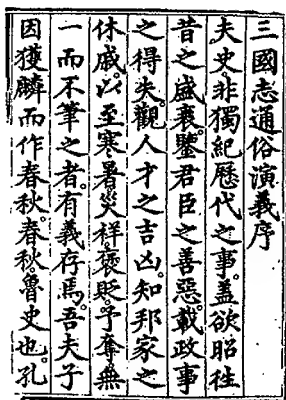 三國志通俗演義序
夫史非獨紀歷代之事。蓋欲昭徃
昔之盛衰。鑒君臣之善惡。載政事
之得失。觀人才之吉凶。知邦家之
休戚。以至寒暑災祥。褒貶。予奪。無
一而不筆之者。有義存焉。吾夫子
因獲麟而作春秋。春秋。魯史也。孔